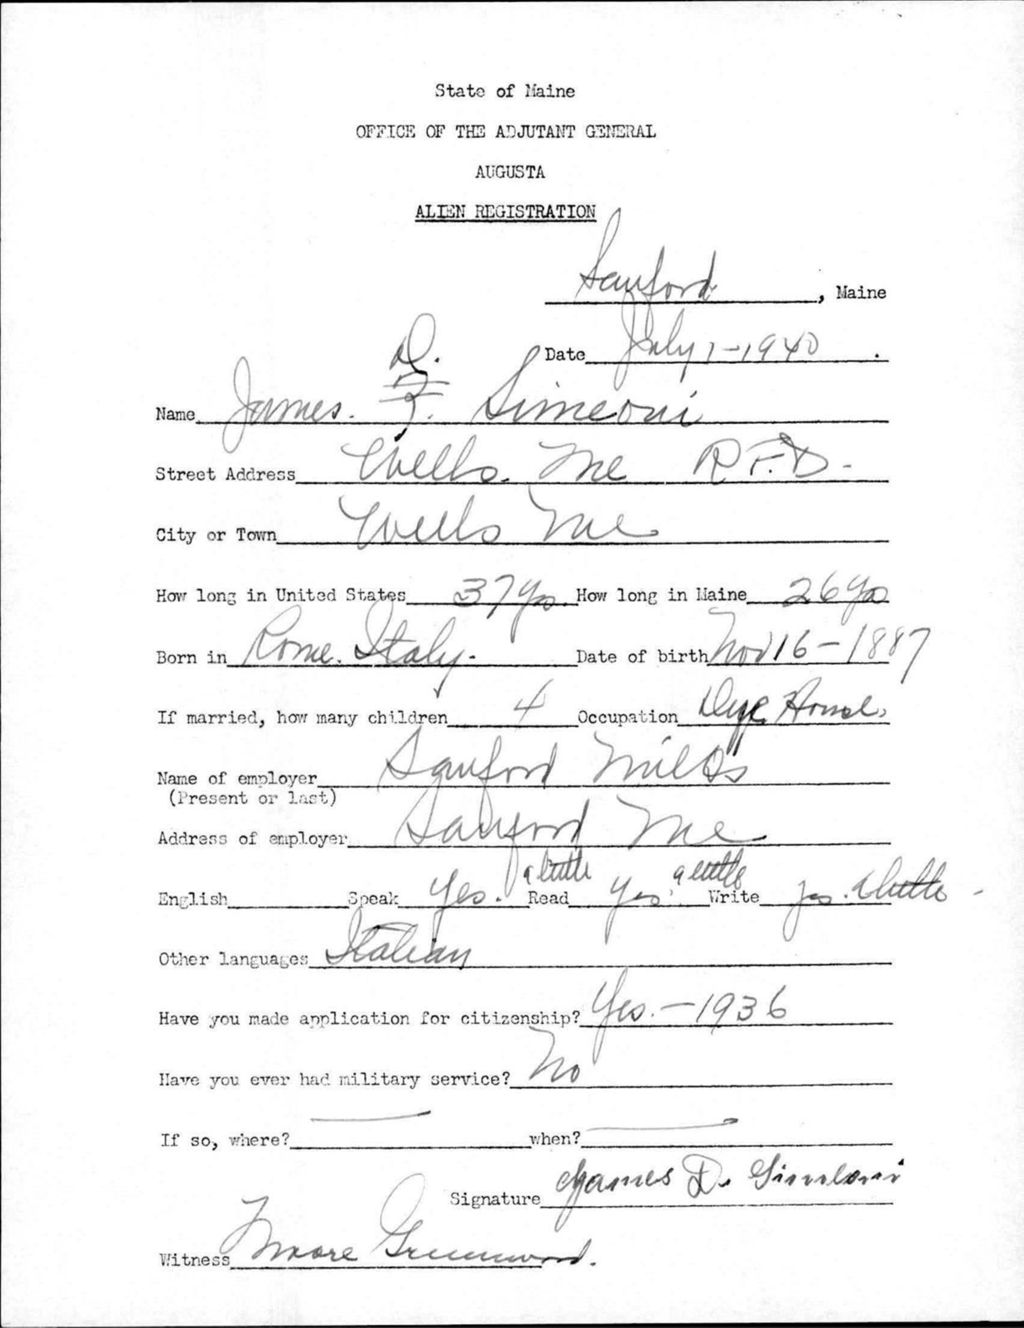 State of Maine
OFFICE OF THE ADJUTANT GENERAL
AUGUSTA
ALIEN REGISTRATION
Sanford, Maine
Date July 1-1940.
D.
Name James. F. Simeoni
Street Address Wells. Me R.F.D-
City or Town Wells Me
How long in United States 37 Yrs How long in Maine 26 Yrs
Born in Rome. Italy. Date of birth Nov 16-1887
If married, how many children 4 Occupation Dye House.
Name of employer Sanford Mills
(Present or last)
Address of employer Sanford Me
English Speak Yes. a little Read Yes. a little Write yes. a little -
Other languages Italian
Have you made application for citizenship? Yes. - 1936
Have you ever had military service? No
If so, where? when?
Signature James D. Simeoni
Witness Moore Greenwood.